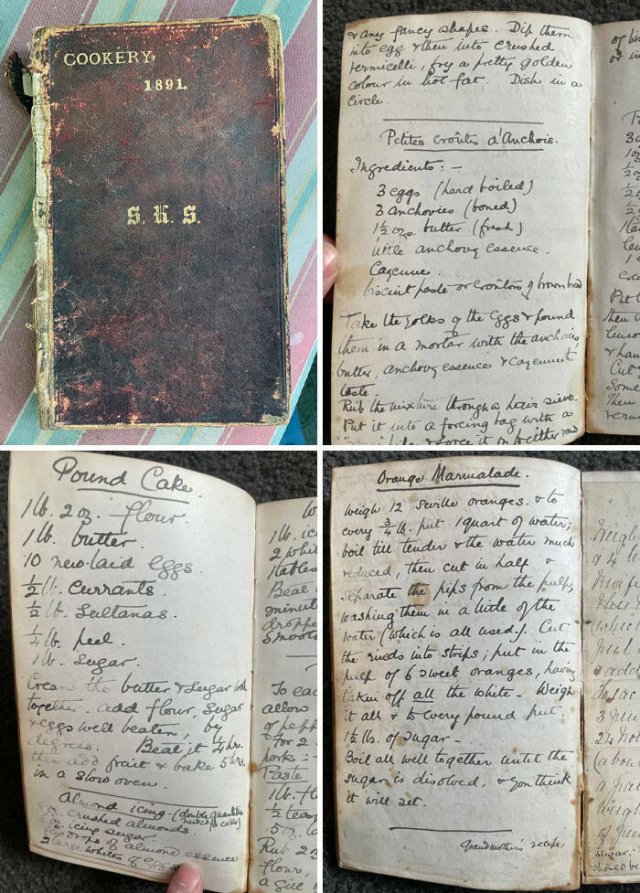 COOKERY.
1891.
S. K. S.
& any fancy shapes. Dip them
into egg & then into crushed
vermicelli, fry a pretty golden
colour in hot fat. Dish in a
circle.
Petites Croûtes d'Anchois.
Ingredients:-
3 eggs (hard boiled)
3 anchovies (boned)
1½ ozs butter (fresh)
little anchovy essence.
Cayenne.
biscuit paste or Croûtons of brown bread
Take the yolks of the eggs & pound
them in a mortar with the anchovies,
butter, anchovy essence & cayenne to
taste.
Rub the mixture through a hair sieve.
Put it into a forcing bag with a
& force it on to either
Pound Cake.
1 lb. 2 oz. flour.
1 lb. butter.
10 new-laid eggs.
½ lb. Currants.
½ lb. Sultanas.
¼ lb. peel.
1 lb. Sugar.
Cream the butter & sugar well
together. add flour, sugar
& eggs well beaten, by
degrees. Beat it ¾ hr.
then add fruit & bake 5 hrs.
in a slow oven.
Almond icing - (double quantities
needed for cake)
crushed almonds.
icing sugar
drops of almond essence
2 large whites of eggs
1 lb. ici
2 whit
Beat
minute
droppe
Smooth
To eac
allow
of pepp
& for 2
pork:-
1 lb. fl
½ teas
5 oz.
Rub
flour,
a gill
Orange Marmalade.
Weigh 12 Seville oranges & to
every ¾ lb. put 1 quart of water;
boil till tender & the water much
reduced, then cut in half &
separate the pips from the pulp,
washing them in a little of the
water (which is all used). Cut
the rinds into strips; put in the
pulp of 6 sweet oranges, having
taken off all the white - Weigh
it all & to every pound put
1½ lbs. of sugar -
Boil all well together until the
sugar is disolved, & you think
it will set.
Grandmother's recipe.